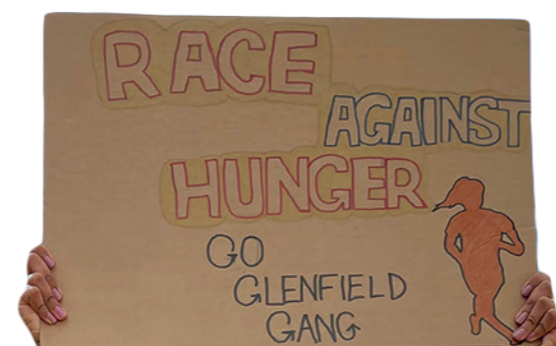 RACE
AGAINST
HUNGER
GO
GLENFIELD
GANG